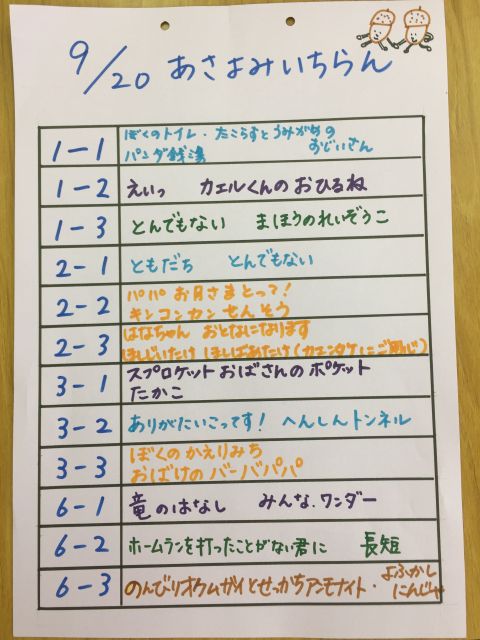 9/20 あさよみいちらん
1-1 ぼくのトイレ・たこらすとうみがめの
おじいさん
パンダ銭湯
1-2 えいっ カエルくんのおひるね
1-3 とんでもない まほうのれいぞうこ
2-1 ともだち とんでもない
2-2 パパお月さまとって!
キンコンカンせんそう
2-3 はなちゃん おとなになります
ほしじいたけ ほしばあたけ(カエンタケにご用心)
3-1 スプロケットおばさんのポケット
たかこ
3-2 ありがたいこってす! へんしんトンネル
3-3 ぼくのかえりみち
おばけのバーバパパ
6-1 竜のはなし みんな.ワンダー
6-2 ホームランを打ったことがない君に 長短
6-3 のんびりオウムガイとせっかちアンモナイト・よふかし
にんじゃ